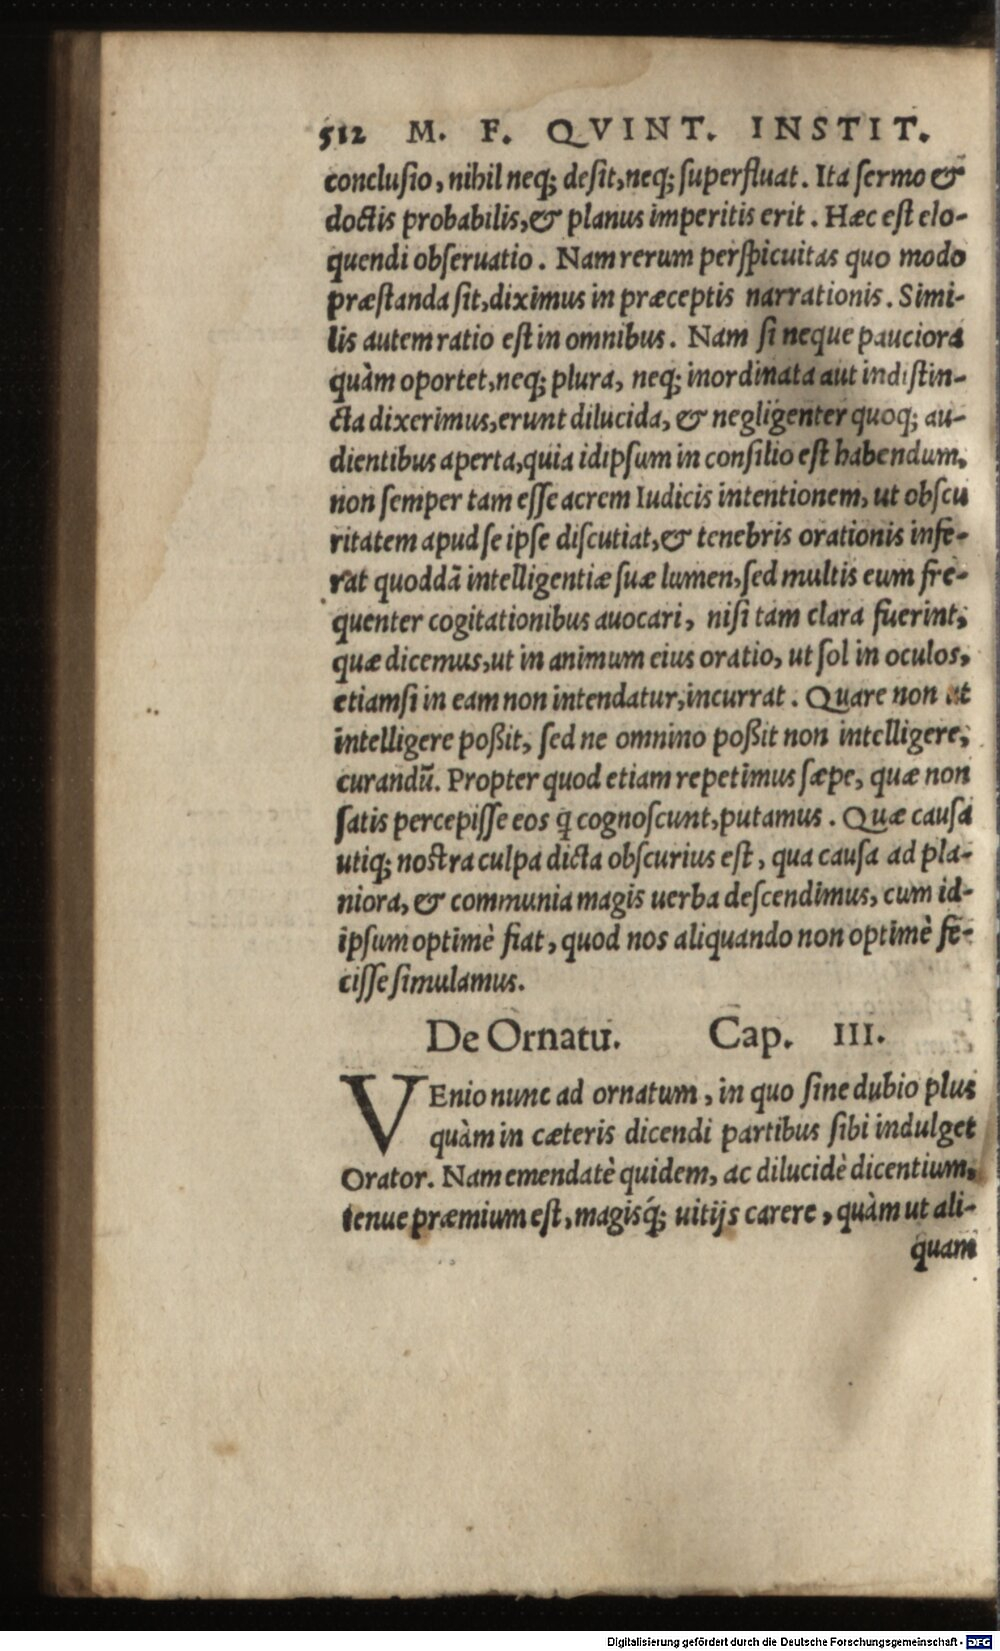 512 M. F. QVINT. INSTIT.
conclusio, nihil neq; desit, neq; superfluat. Ita sermo &
doctis probabilis, & planus imperitis erit. Hæc est elo-
quendi obseruatio. Nam rerum perspicuitas quo modo
præstanda sit, diximus in præceptis narrationis. Simi-
lis autem ratio est in omnibus. Nam si neque pauciora
quàm oportet, neq; plura, neq; inordinata aut indistin-
cta dixerimus, erunt dilucida, & negligenter quoq; au-
dientibus aperta, quia idipsum in consilio est habendum,
non semper tam esse acrem Iudicis intentionem, ut obscu
ritatem apud se ipse discutiat, & tenebris orationis infe-
rat quoddã intelligentiæ suæ lumen, sed multis eum fre-
quenter cogitationibus auocari, nisi tam clara fuerint,
quæ dicemus, ut in animum eius oratio, ut sol in oculos,
etiamsi in eam non intendatur, incurrat. Quare non ut
intelligere poßit, sed ne omnino poßit non intelligere,
curandũ. Propter quod etiam repetimus sæpe, quæ non
satis percepisse eos q̃ cognoscunt, putamus. Quæ causa
utiq; nostra culpa dicta obscurius est, qua causa ad pla-
niora, & communia magis uerba descendimus, cum id-
ipsum optimè fiat, quod nos aliquando non optimè fe-
cisse simulamus.
De Ornatu. Cap. III.
VEnio nunc ad ornatum, in quo sine dubio plus
quàm in cæteris dicendi partibus sibi indulget
Orator. Nam emendatè quidem, ac dilucidè dicentium,
tenue præmium est, magisq́; uitijs carere, quàm ut ali-
quam
Digitalisierung gefördert durch die Deutsche Forschungsgemeinschaft - DFG